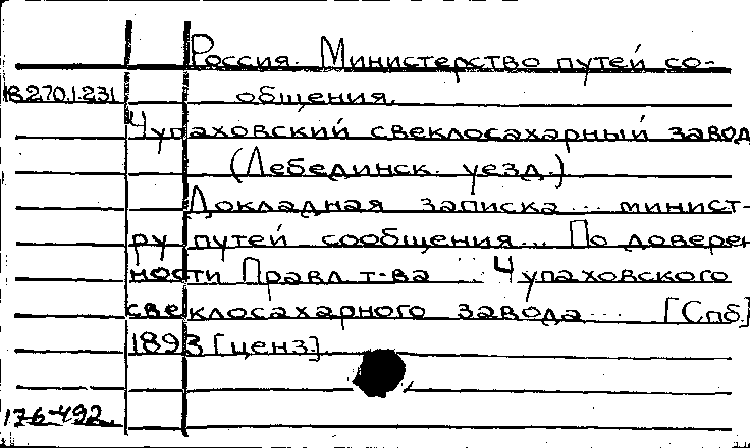 Россия. Министерство путей со-
18.270.1.231 общения.
Чупаховский свеклосахарный завод
(Лебединск. уезд.)
Докладная записка... минист-
ру путей сообщения... По доверен
ности Правл. т-ва ... Чупаховского
свеклосахарного завода... [Спб]
1893 [ценз].
176-492